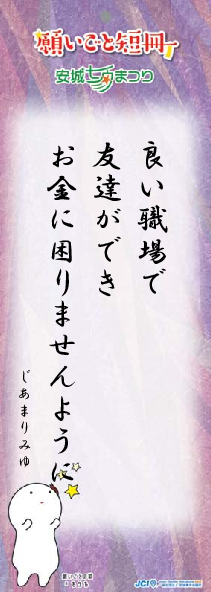 願いごと短冊
安城七夕まつり
良い職場で
友達ができ
お金に困りませんように
じあまりみゆ
願いごと短冊
JCI